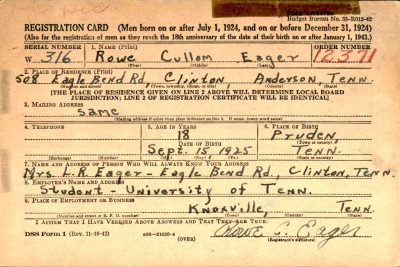 Budget Bureau No. 33-R012-42
REGISTRATION CARD (Men born on or after July 1, 1924, and on or before December 31, 1924)
(Also for the registration of men as they reach the 18th anniversary of the date of their birth on or after January 1, 1943.)
SERIAL NUMBER 1. NAME (Print) ORDER NUMBER
W 316 Rowe Cullom Eager 12371
(First) (Middle) (Last)
2. PLACE OF RESIDENCE (Print)
508 Eagle Bend Rd, Clinton, Anderson, Tenn.
(Number and street) (Town) (County) (State)
[THE PLACE OF RESIDENCE GIVEN ON LINE 2 ABOVE WILL DETERMINE LOCAL BOARD
JURISDICTION; LINE 2 OF REGISTRATION CERTIFICATE WILL BE IDENTICAL]
3. MAILING ADDRESS
same
[Mailing address if other than place indicated on line 2. If same, insert word same]
4. TELEPHONE 5. AGE IN YEARS 6. PLACE OF BIRTH
18 Pruden,
DATE OF BIRTH (Town or county)
Sept. 15, 1925 Tenn.
(Exchange) (Number) (Mo.) (Day) (Yr.) (State or country)
7. NAME AND ADDRESS OF PERSON WHO WILL ALWAYS KNOW YOUR ADDRESS
Mrs L.R. Eager - Eagle Bend Rd., Clinton, Tenn.
8. EMPLOYER'S NAME AND ADDRESS
Student - University of Tenn.
9. PLACE OF EMPLOYMENT OR BUSINESS
Knoxville, Tenn.
(Number and street or R. F. D. number) (Town) (County) (State)
I AFFIRM THAT I HAVE VERIFIED ABOVE ANSWERS AND THAT THEY ARE TRUE.
DSS Form 1 (Rev. 11-16-42) (OVER) Rowe C. Eager
(Registrant's signature)